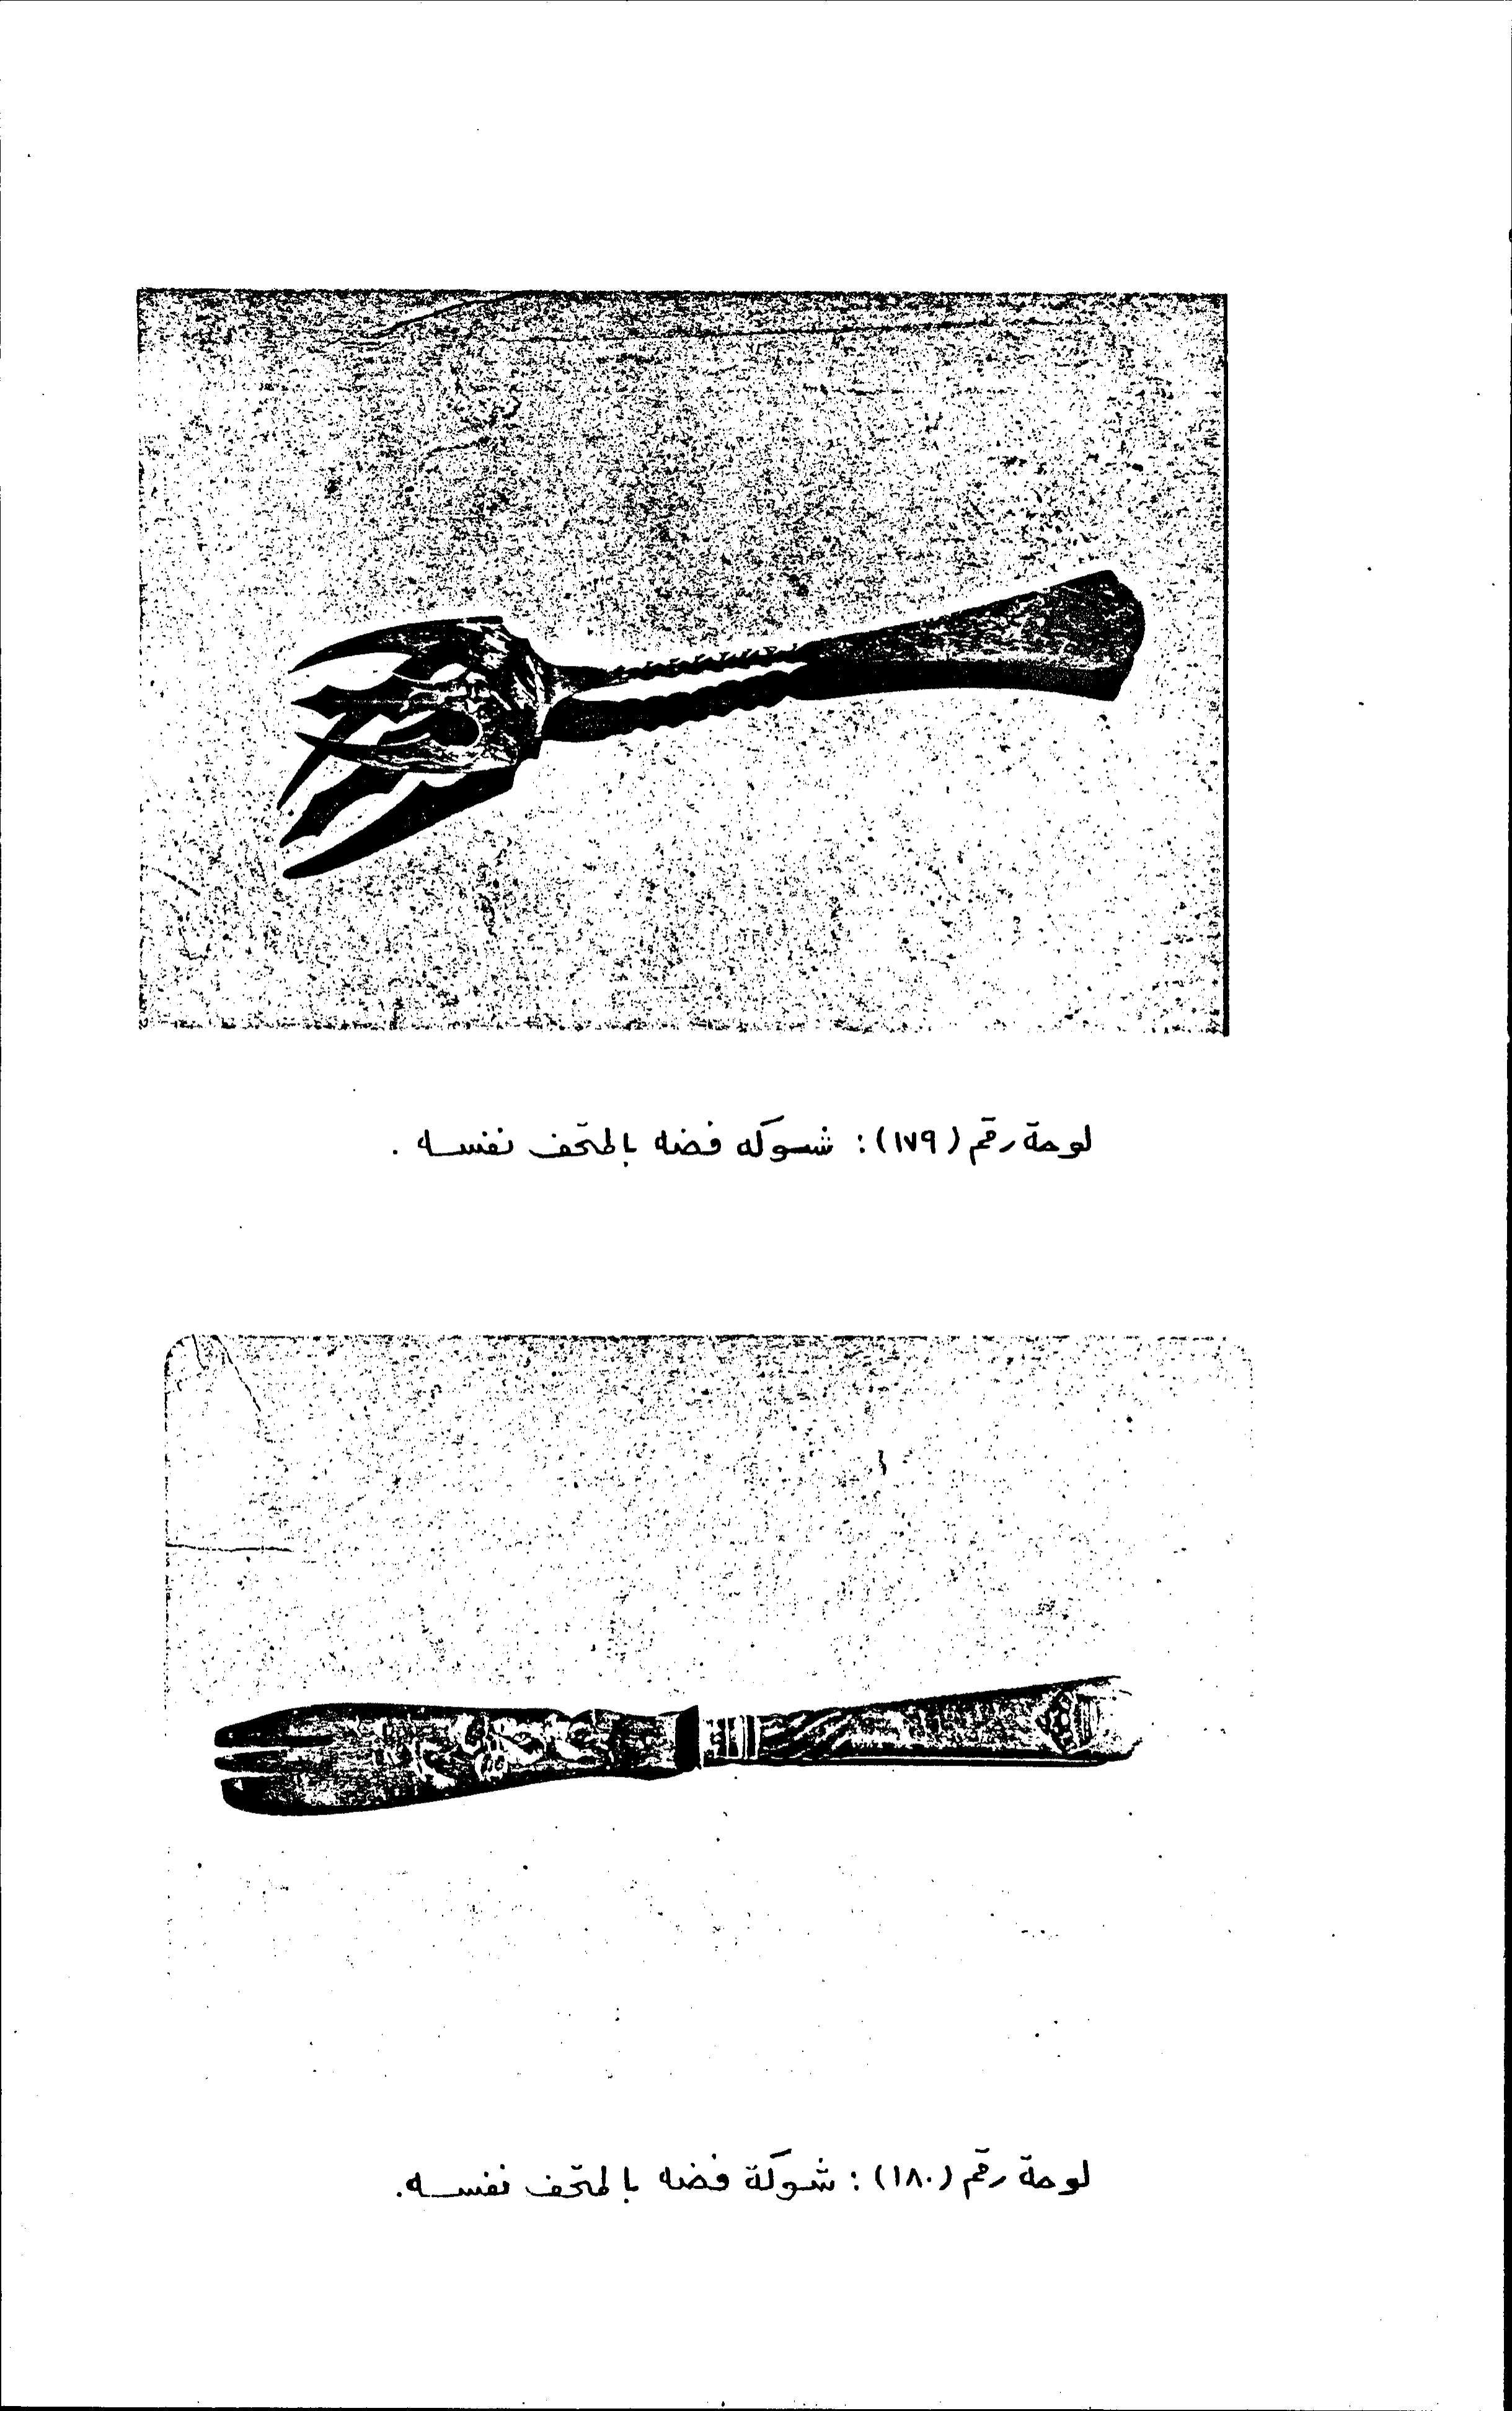 لوحة رقم (١٧٩) : شوكه فضه بالمتحف نفسه .
لوحة رقم (١٨٠) : شوكة فضه بالمتحف نفسه.